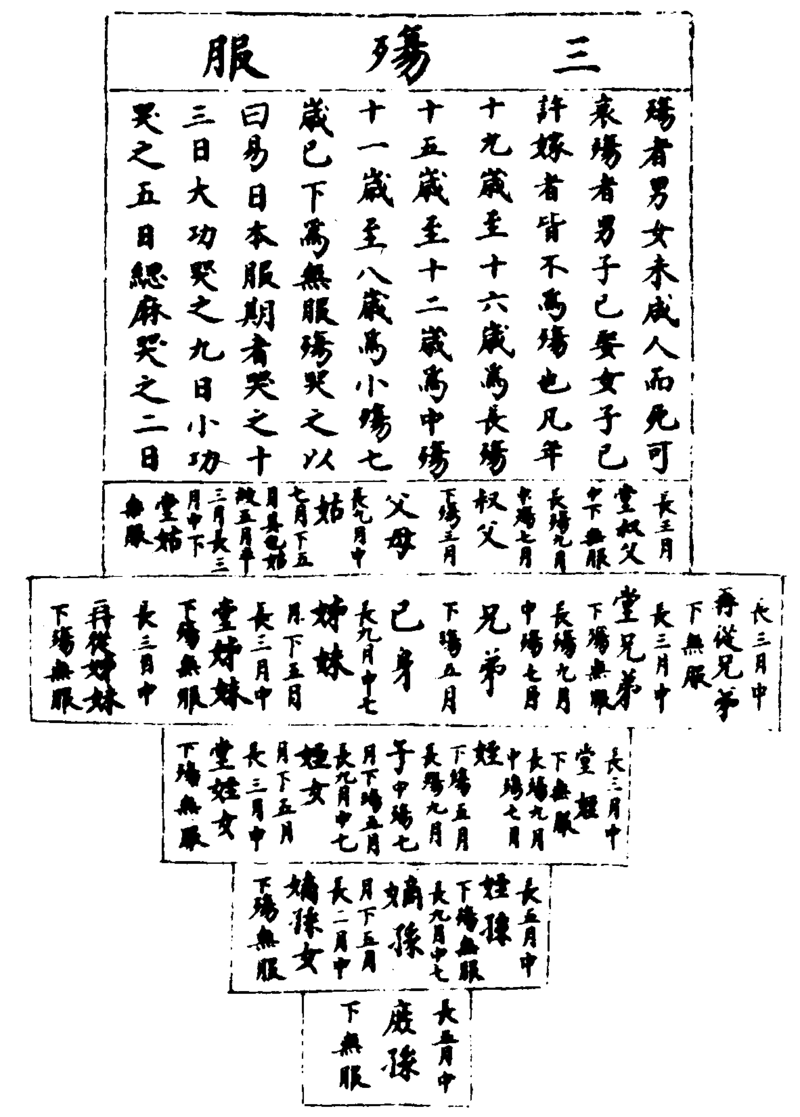 三殤服
殤者男女未成人而死可
哀殤者男子已娶女子已
許嫁者皆不為殤也凡年
十九歲至十六歲為長殤
十五歲至十二歲為中殤
十一歲至八歲為小殤七
歲已下為無服殤哭之以
曰易日本服期者哭之十
三日大功哭之九日小功
哭之五日緦麻哭之二日
長三月
堂叔父
中下無服
長殤九月
中殤七月
叔父
下殤三月
父母
長九月中
姑
七月下五
月其出姑
故五月卒
三月長三
月中下
堂姑
無服
長三月中
再從兄弟
下無服
長三月中
堂兄弟
下殤無服
長殤九月
中殤七月
兄弟
下殤五月
已身
長九月中七
姊妹
月下五月
長三月中
堂姊妹
下殤無服
長三月中
再從姊妹
下殤無服
長三月中
堂姪
下無服
長殤九月
中殤七月
姪
下殤五月
長殤九月
子中殤七
月下殤五月
長九月中七
姪女
月下五月
長三月中
堂姪女
下殤無服
長五月中
姪孫
下殤無服
長九月中七
嫡孫
月下五月
長二月中
嫡孫女
下殤無服
長五月中
庶孫
下無服